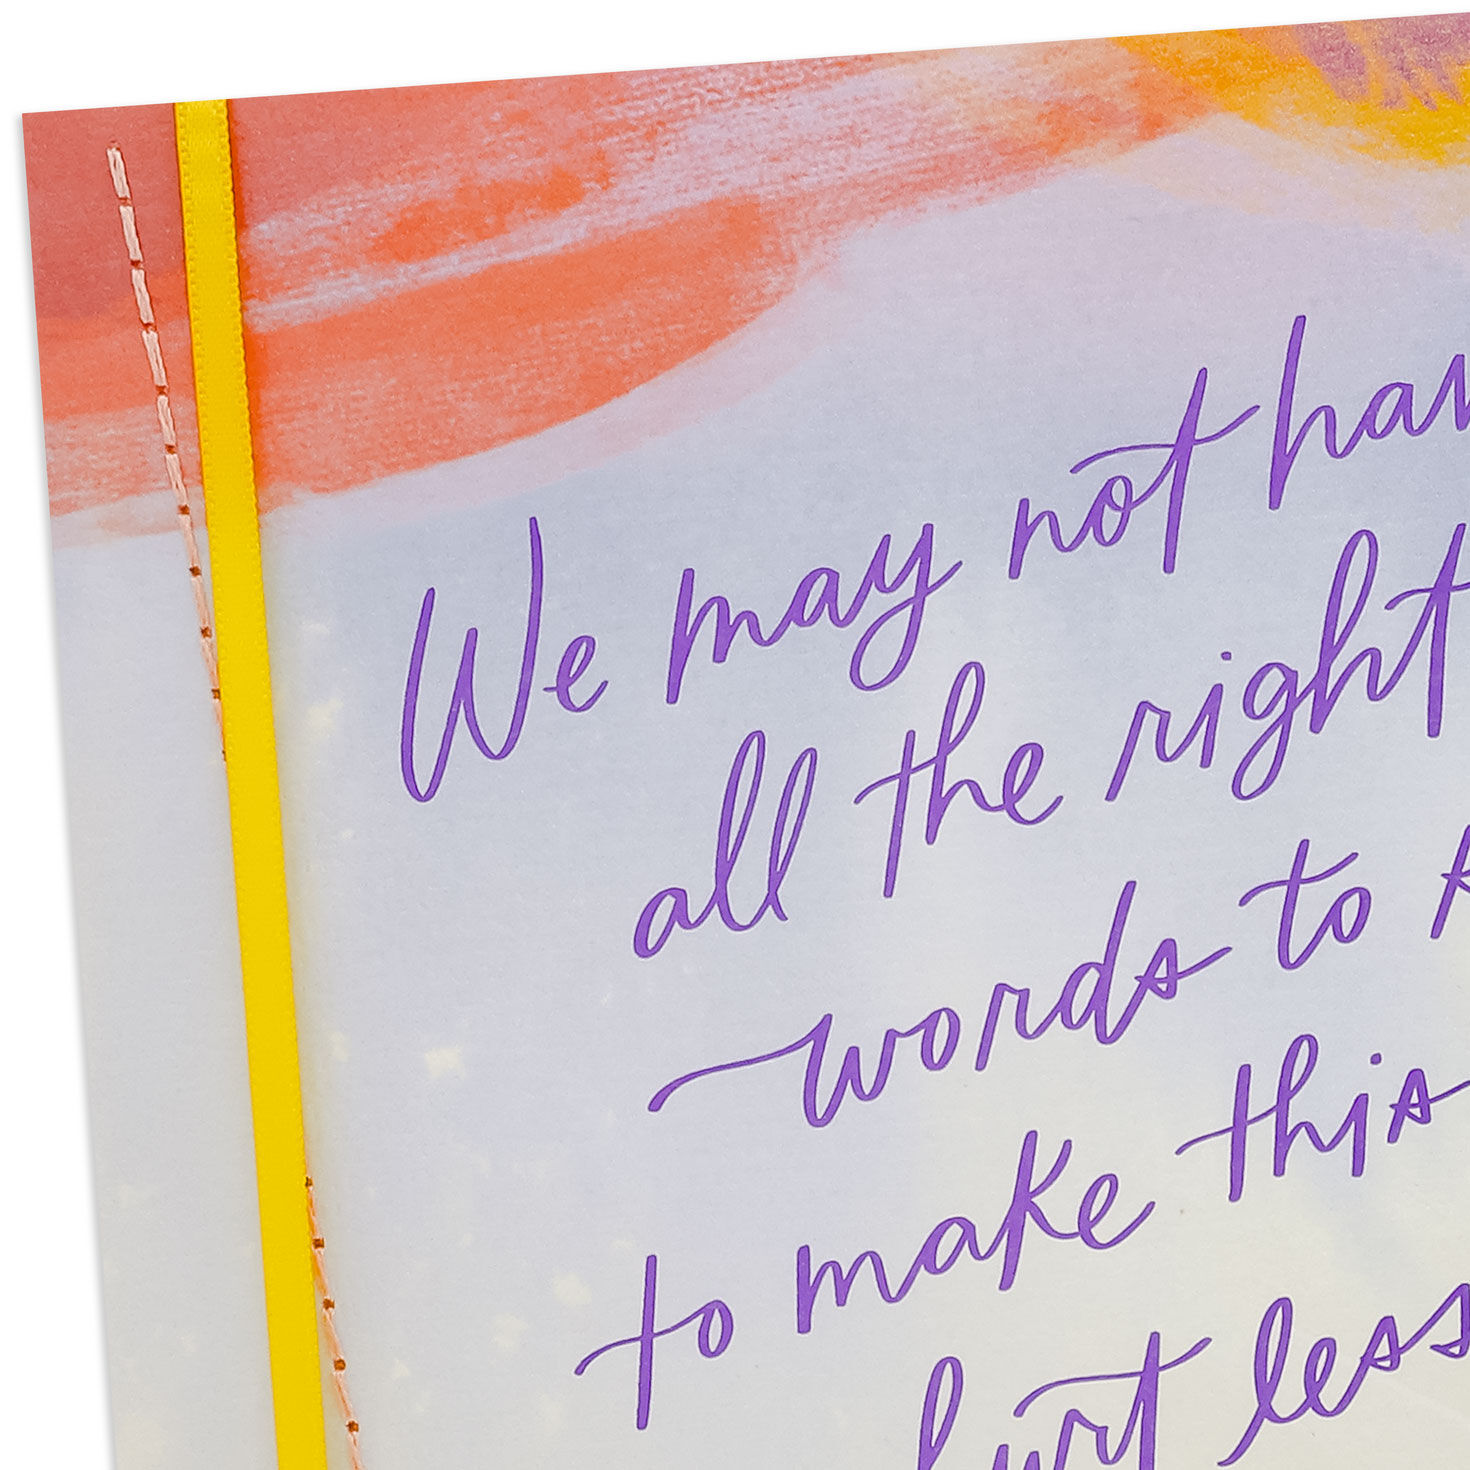 We may not hav
all the right
words to
to make this
hurt less